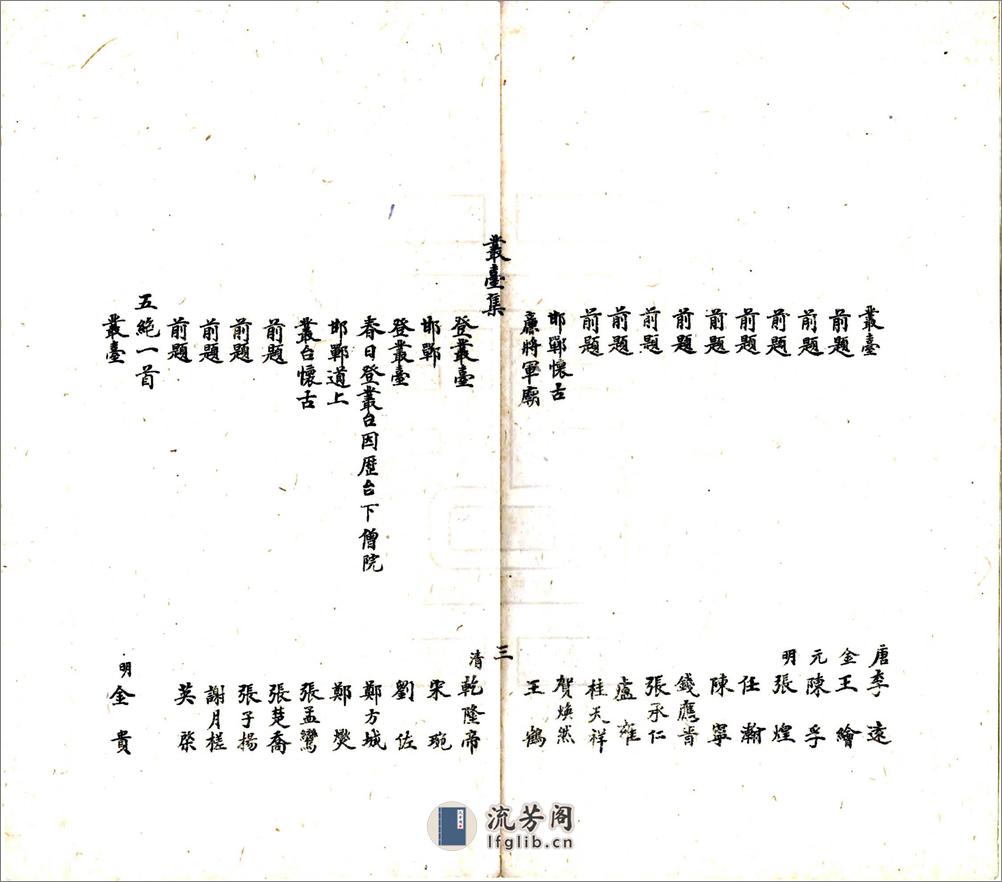 叢臺 唐 李遠
前題 金 王繪
前題 元 陳孚
前題 明 張煌
前題 任瀚
前題 陳寧
前題 錢應晋
前題 張承仁
前題 盧雍
前題 桂天祥
邯鄲懷古 賀煥然
廉將軍廟 王鶴
叢臺集 三
登叢臺 清 乾隆帝
邯鄲 宋琬
登叢臺 劉佐
春日登叢台因歷台下僧院 鄭方城
邯鄲道上 鄭燮
叢台懷古 張孟鸞
前題 張楚喬
前題 張子揚
前題 謝月槎
前題 英棨
五絕一首
叢臺 明 金貴
流芳阁
lfglib.cn